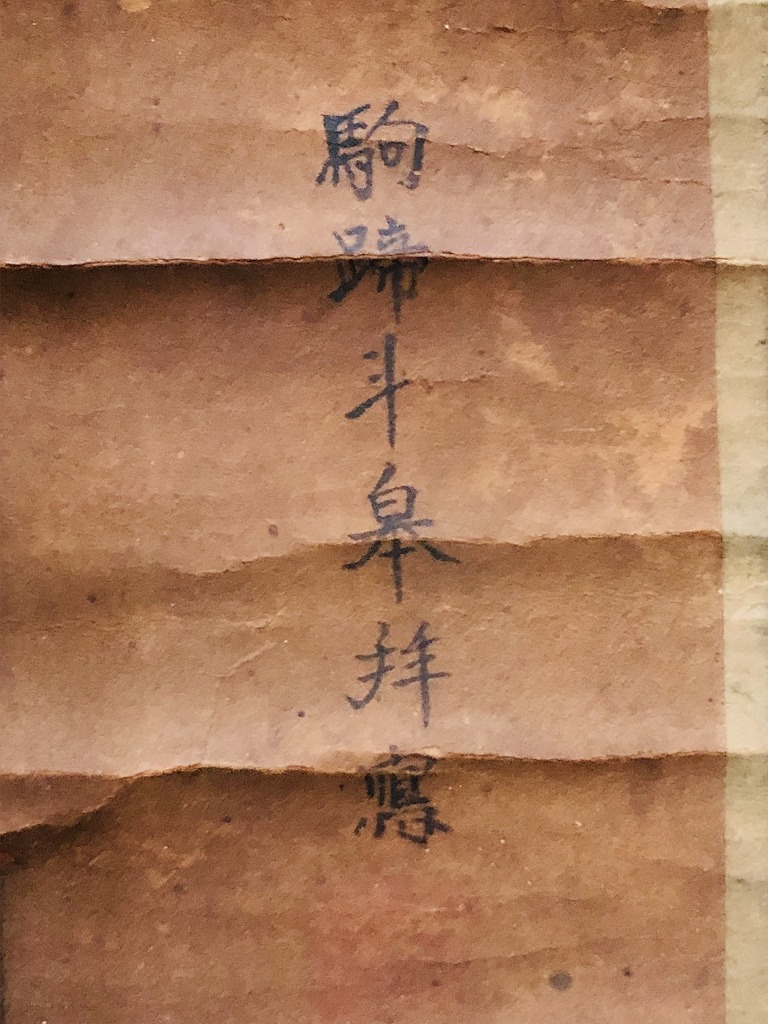 駒蹄斗皋拜寫